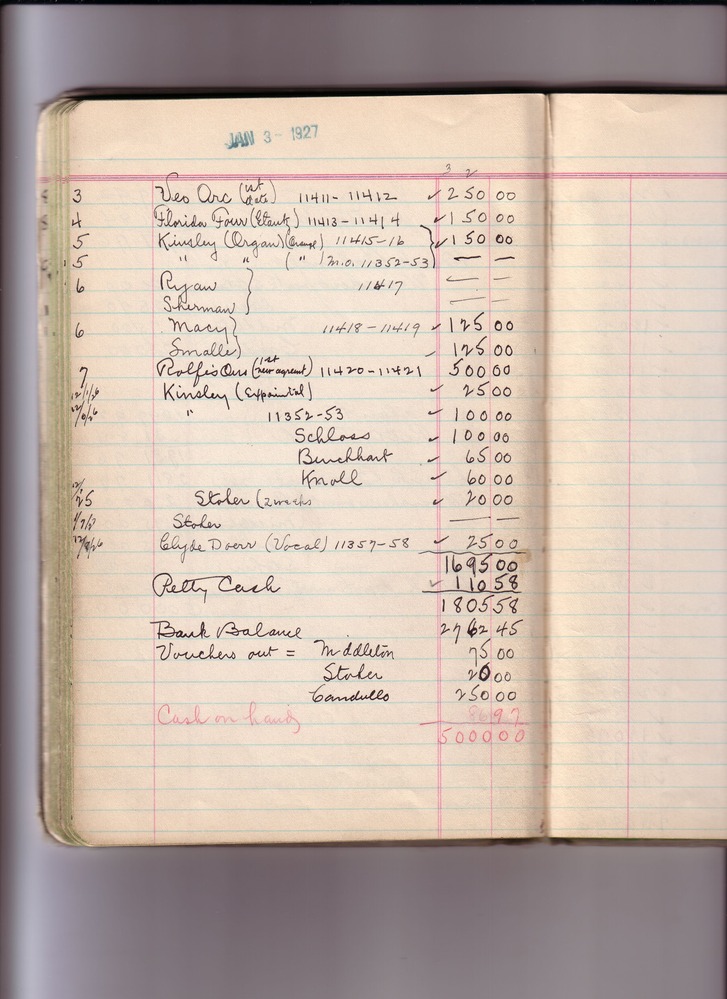 JAN 3 - 1927
3 2
3 Veo Arc (1st date) 11411 - 11412 ✓ 250 00
4 Florida Four (Etauk) 11413 - 11414 ✓ 150 00
5 Kinsley (Organ) 11415-16 ✓ 150 00
5 " " ( " ) m.o. 11352-53 — —
6 Ryan 11417 — —
Sherman — —
6 Macy 11418 - 11419 ✓ 125 00
Smalle ✓ 125 00
7 Rolfe's Orc (1st new agreemt) 11420 - 11421 500 00
12/1/26 Kinsley ( ) ✓ 25 00
" 11352-53 ✓ 100 00
Schloss ✓ 100 00
Burckhart ✓ 65 00
Knoll ✓ 60 00
25 Stoker (2 weeks ✓ 20 00
Stoker — —
Clyde Doerr (Vocal) 11357 - 58 ✓ 25 00
1695 00
Petty Cash ✓ 110 58
1805 58
Bank Balance 2762 45
Vouchers out = Middleton 75 00
Stoker 20 00
Candullo 250 00
Cash on hand 86 97
5000 00